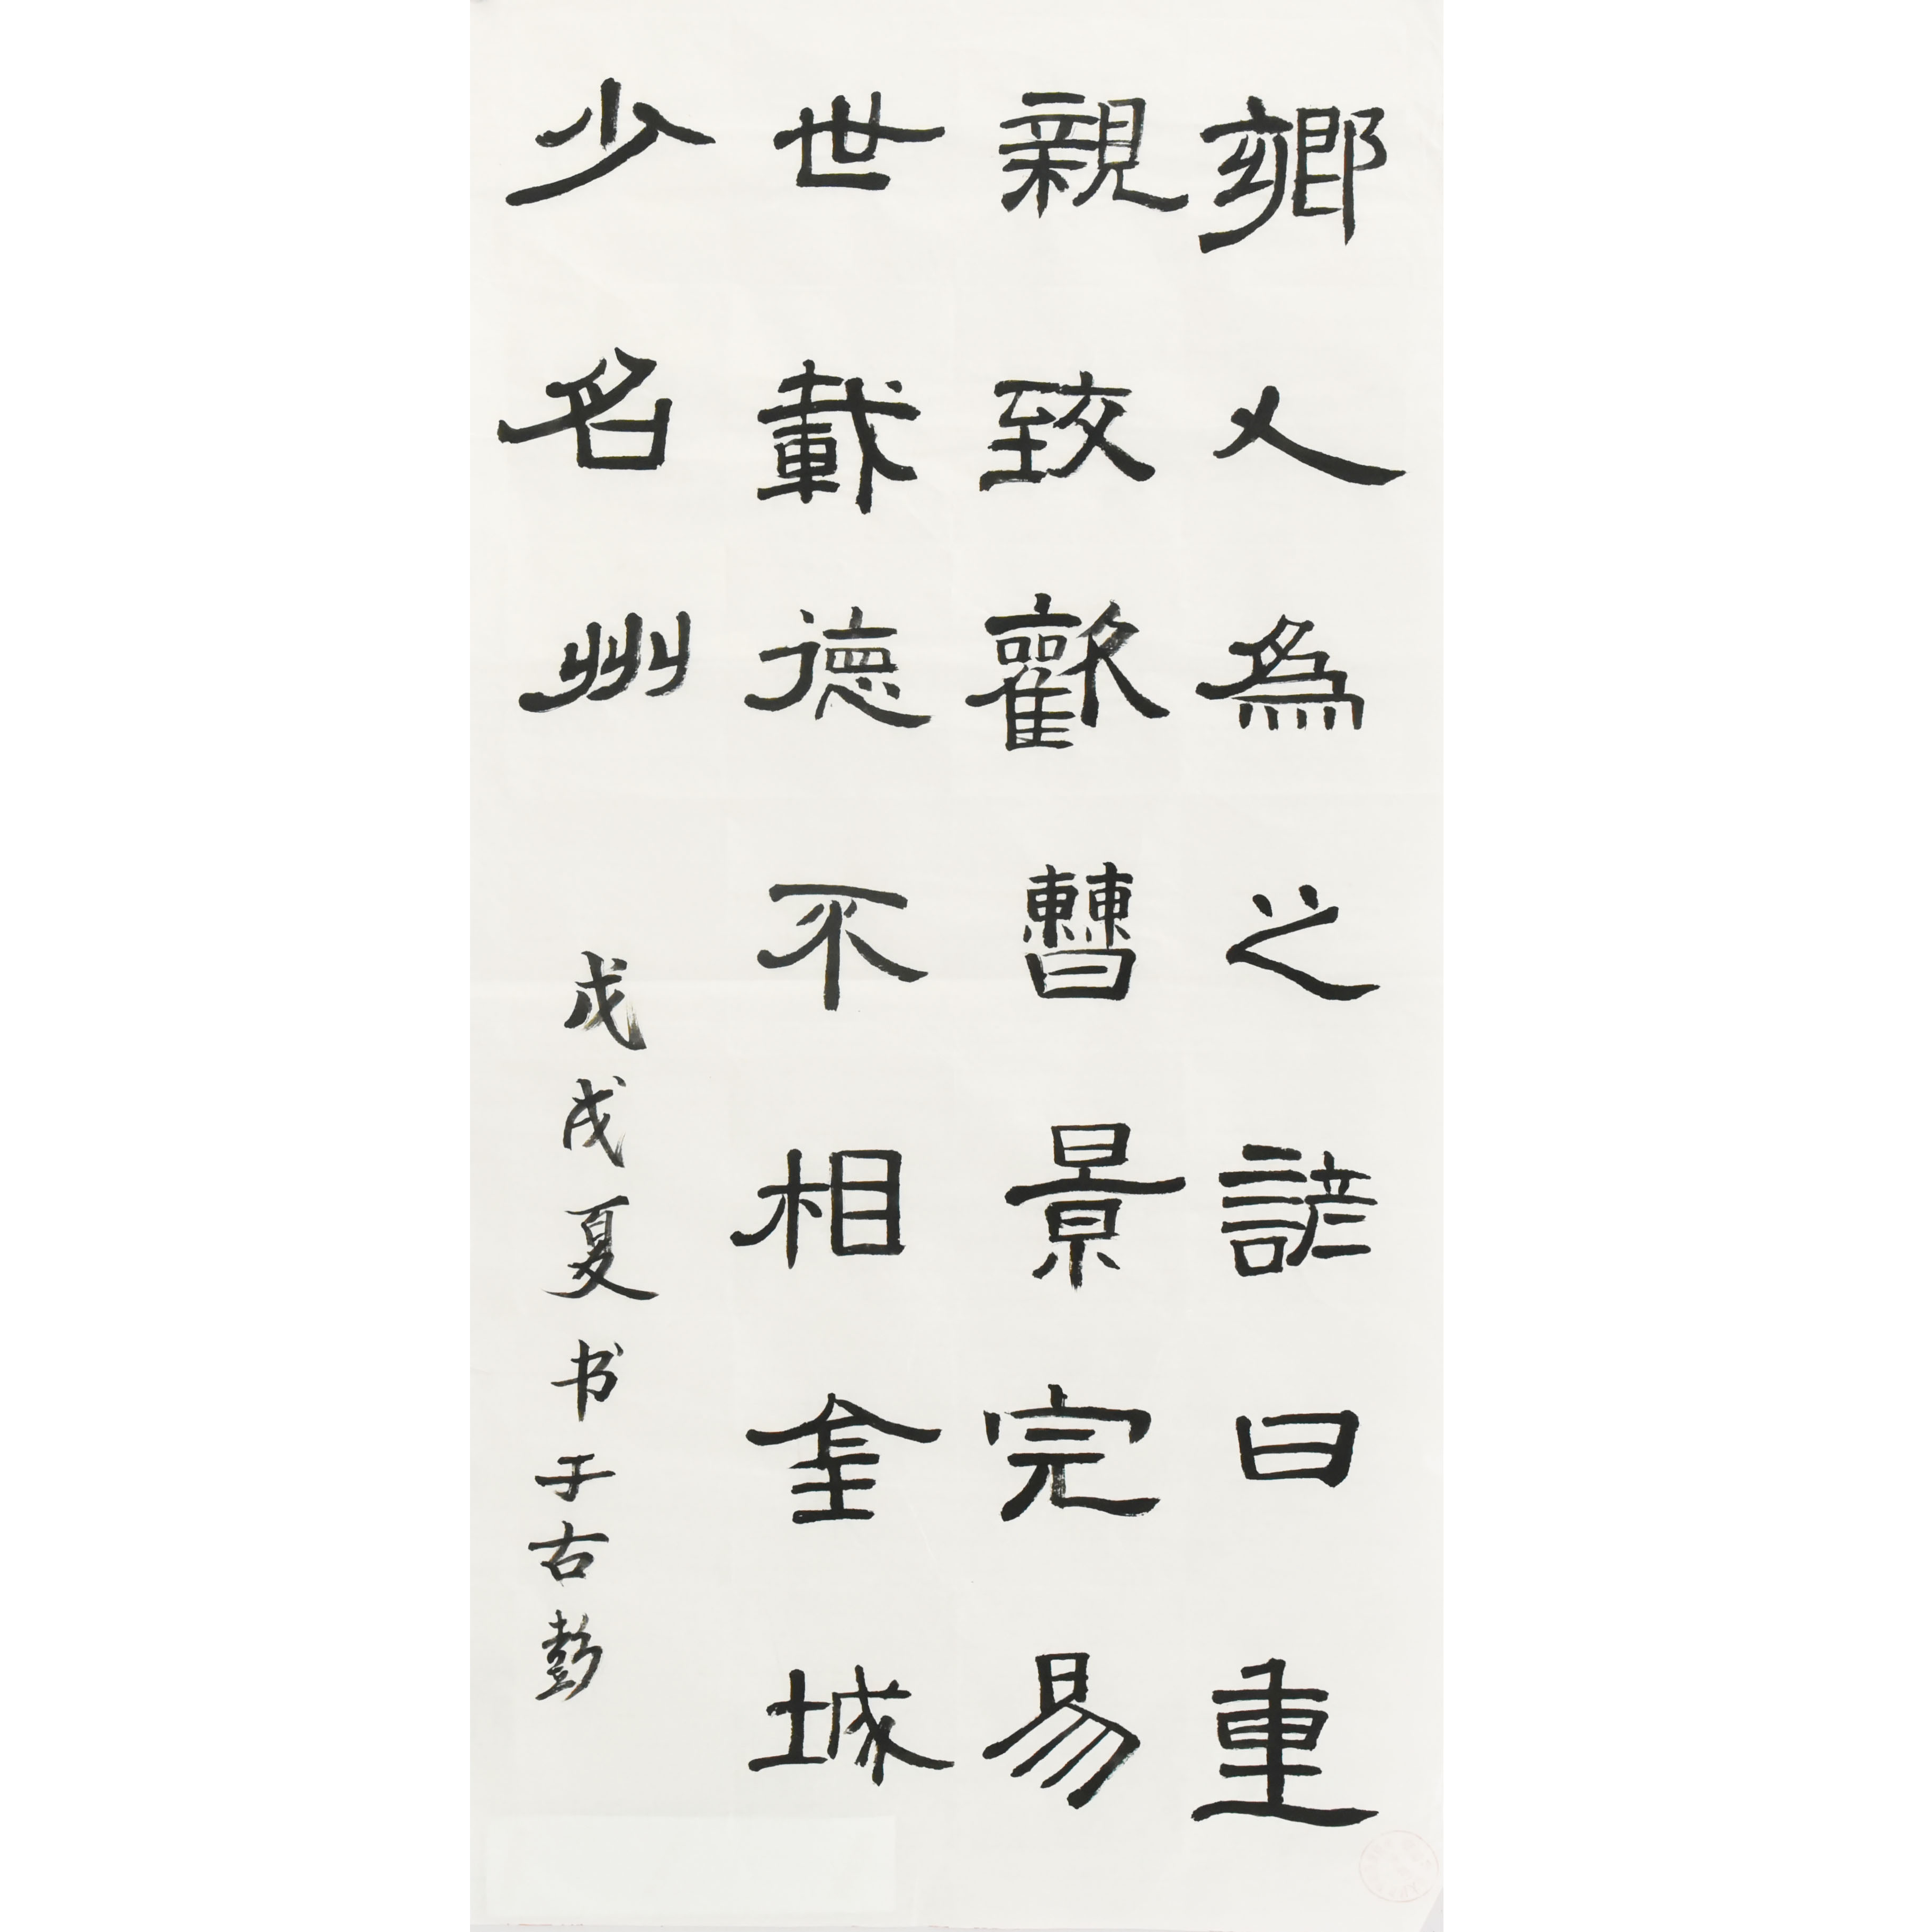 鄉人爲之諺曰重
親致歡曹景完易
世載德不相金城
少名州
戊戌夏书于古彭